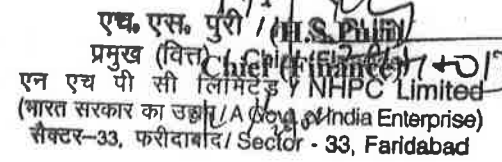 एच. एस. पुरी / (H.S. Puri)
प्रमुख (वित्त) / Chief (Finance)
एन एच पी सी लिमिटेड / NHPC Limited
(भारत सरकार का उद्यम / A Govt. of India Enterprise)
सैक्टर-33, फरीदाबाद / Sector - 33, Faridabad